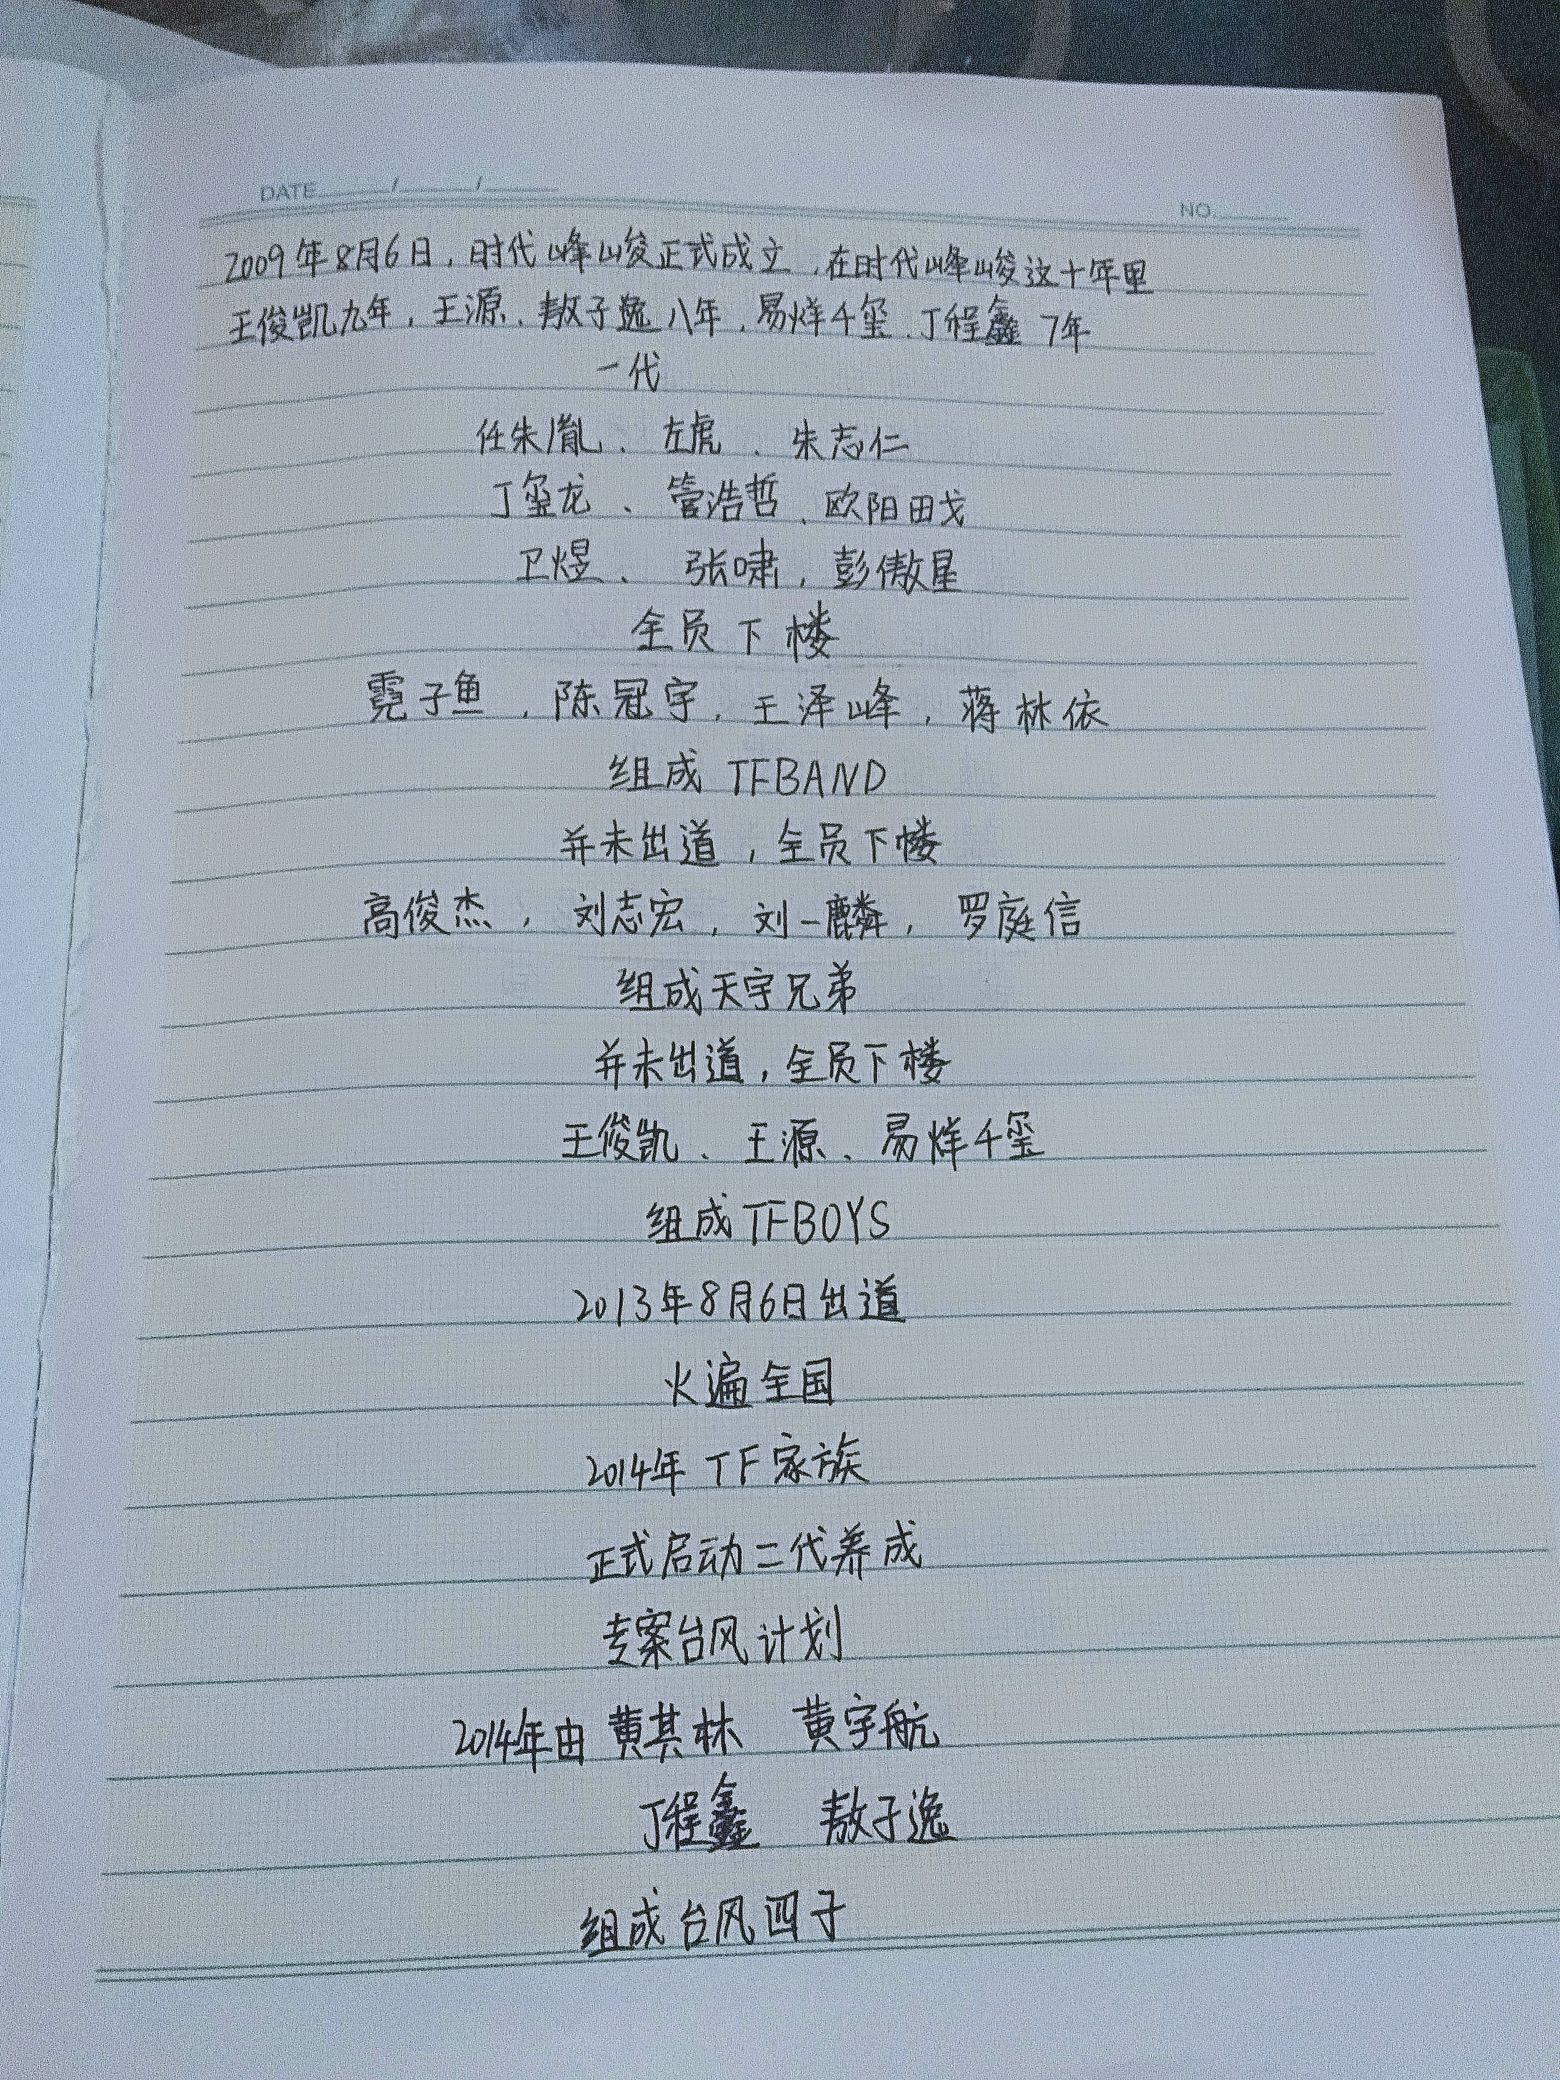 DATE / /
NO.
2009年8月6日，时代峰峻正式成立，在时代峰峻这十年里
王俊凯九年，王源、敖子逸八年，易烊千玺、丁程鑫7年
一代
任朱胤、左虎、朱志仁
丁玺龙、管浩哲、欧阳田戈
卫煜、张啸，彭傲星
全员下楼
霓子鱼，陈冠宇，王泽峰，蒋林依
组成TFBAND
并未出道，全员下楼
高俊杰，刘志宏，刘一麟，罗庭信
组成天宇兄弟
并未出道，全员下楼
王俊凯、王源、易烊千玺
组成TFBOYS
2013年8月6日出道
火遍全国
2014年TF家族
正式启动二代养成
专案台风计划
2014年由黄其林 黄宇航
丁程鑫 敖子逸
组成台风四子